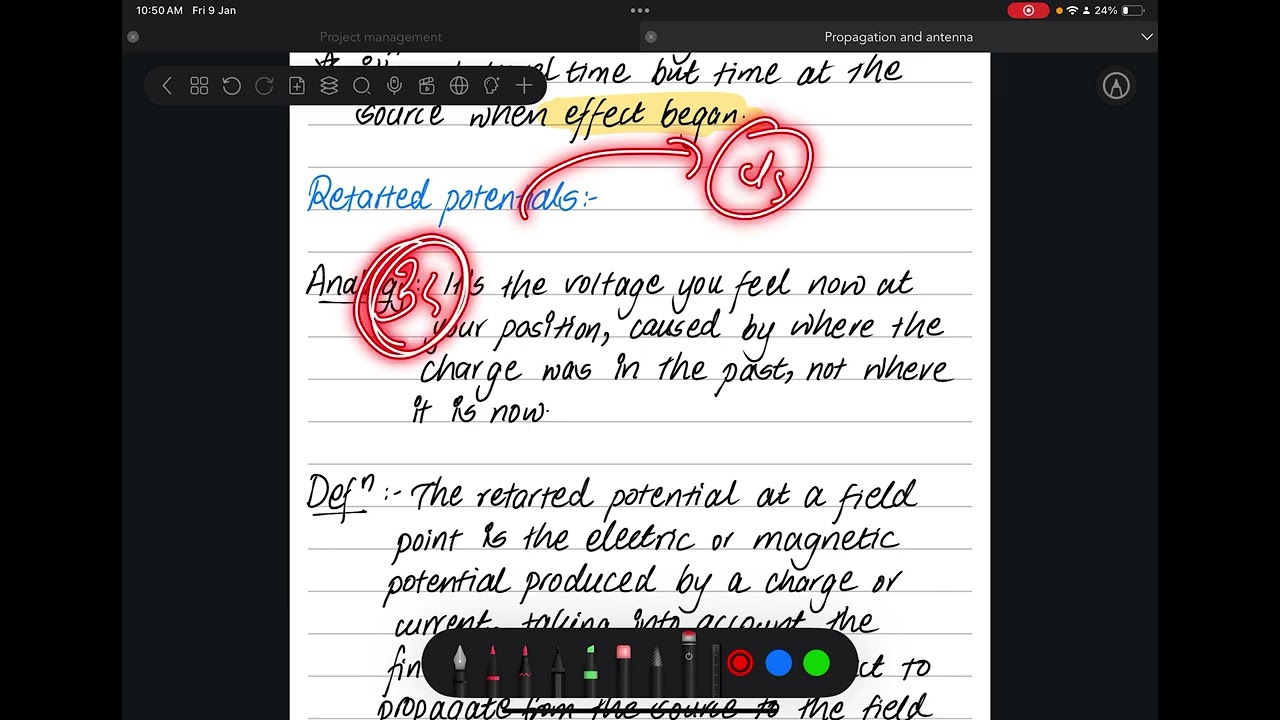 10:50 AM Fri 9 Jan
24%
Project management
Propagation and antenna
time but time at the
source when effect began.
Retarted potentials:-
Analogy: It's the voltage you feel now at
your position, caused by where the
charge was in the past, not where
it is now.
Defⁿ :- The retarted potential at a field
point is the electric or magnetic
potential produced by a charge or
current, taking into account the
to
propagate from the source to the field